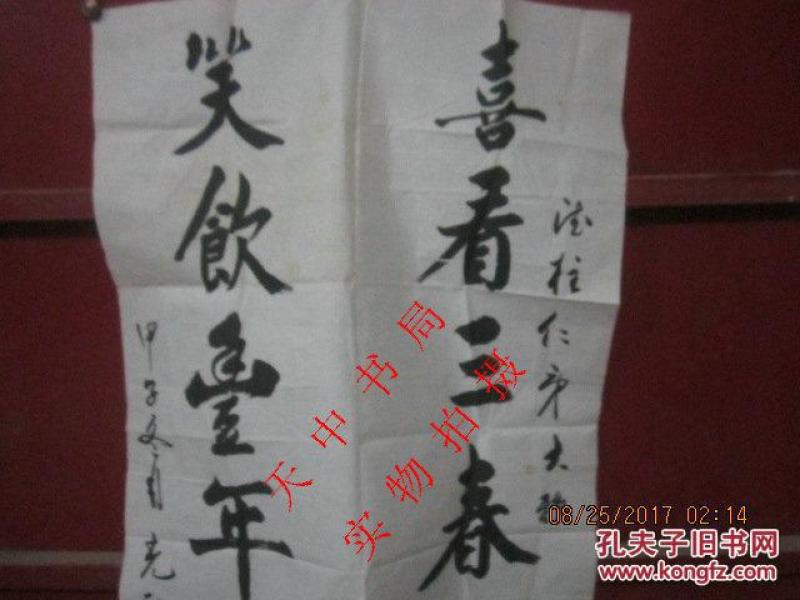 喜看三春
笑飲豐年
德柱仁弟大
甲子冬月 克
天中书局
实物拍摄
08/25/2017 02:14
孔夫子旧书网
www.kongfz.com